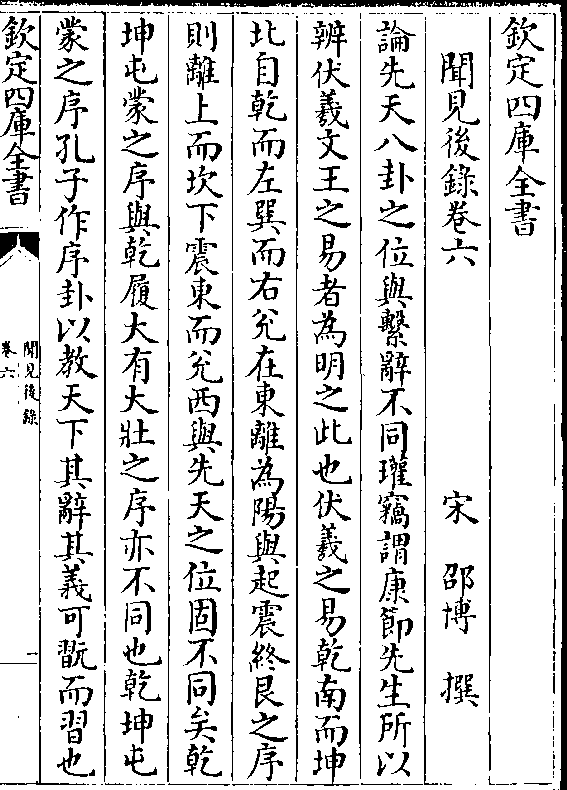 欽定四庫全書
聞見後錄卷六
宋 邵博 撰
論先天八卦之位與繫辭不同瓘竊謂康節先生所以
辨伏羲文王之易者為明之此也伏羲之易乾南而坤
北自乾而左巽而右兊在東離為陽與起震終艮之序
則離上而坎下震東而兊西與先天之位固不同矣乾
坤屯蒙之序與乾履大有大壯之序亦不同也乾坤屯
蒙之序孔子作序卦以教天下其辭其義可翫而習也
欽定四庫全書
聞見後錄
卷六
一